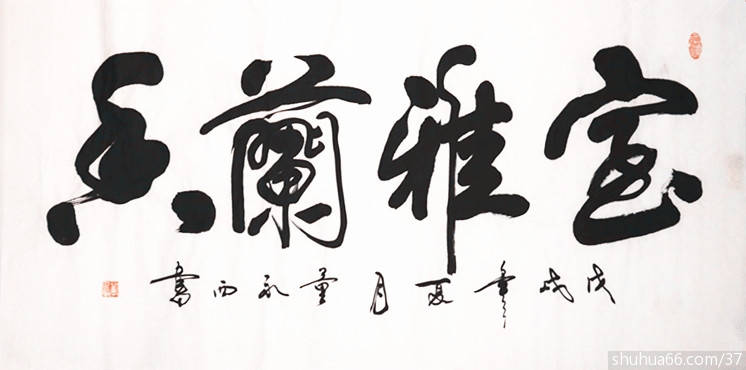 室雅蘭香
戊戌年夏月西書
shuhua66.com/37